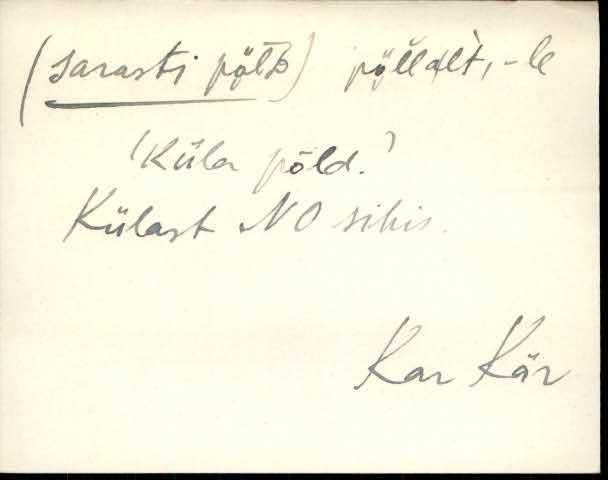 (sarasti põlb) põllalt, -le
'Küla põld.'
Külast NO sihis.
Kar Kär